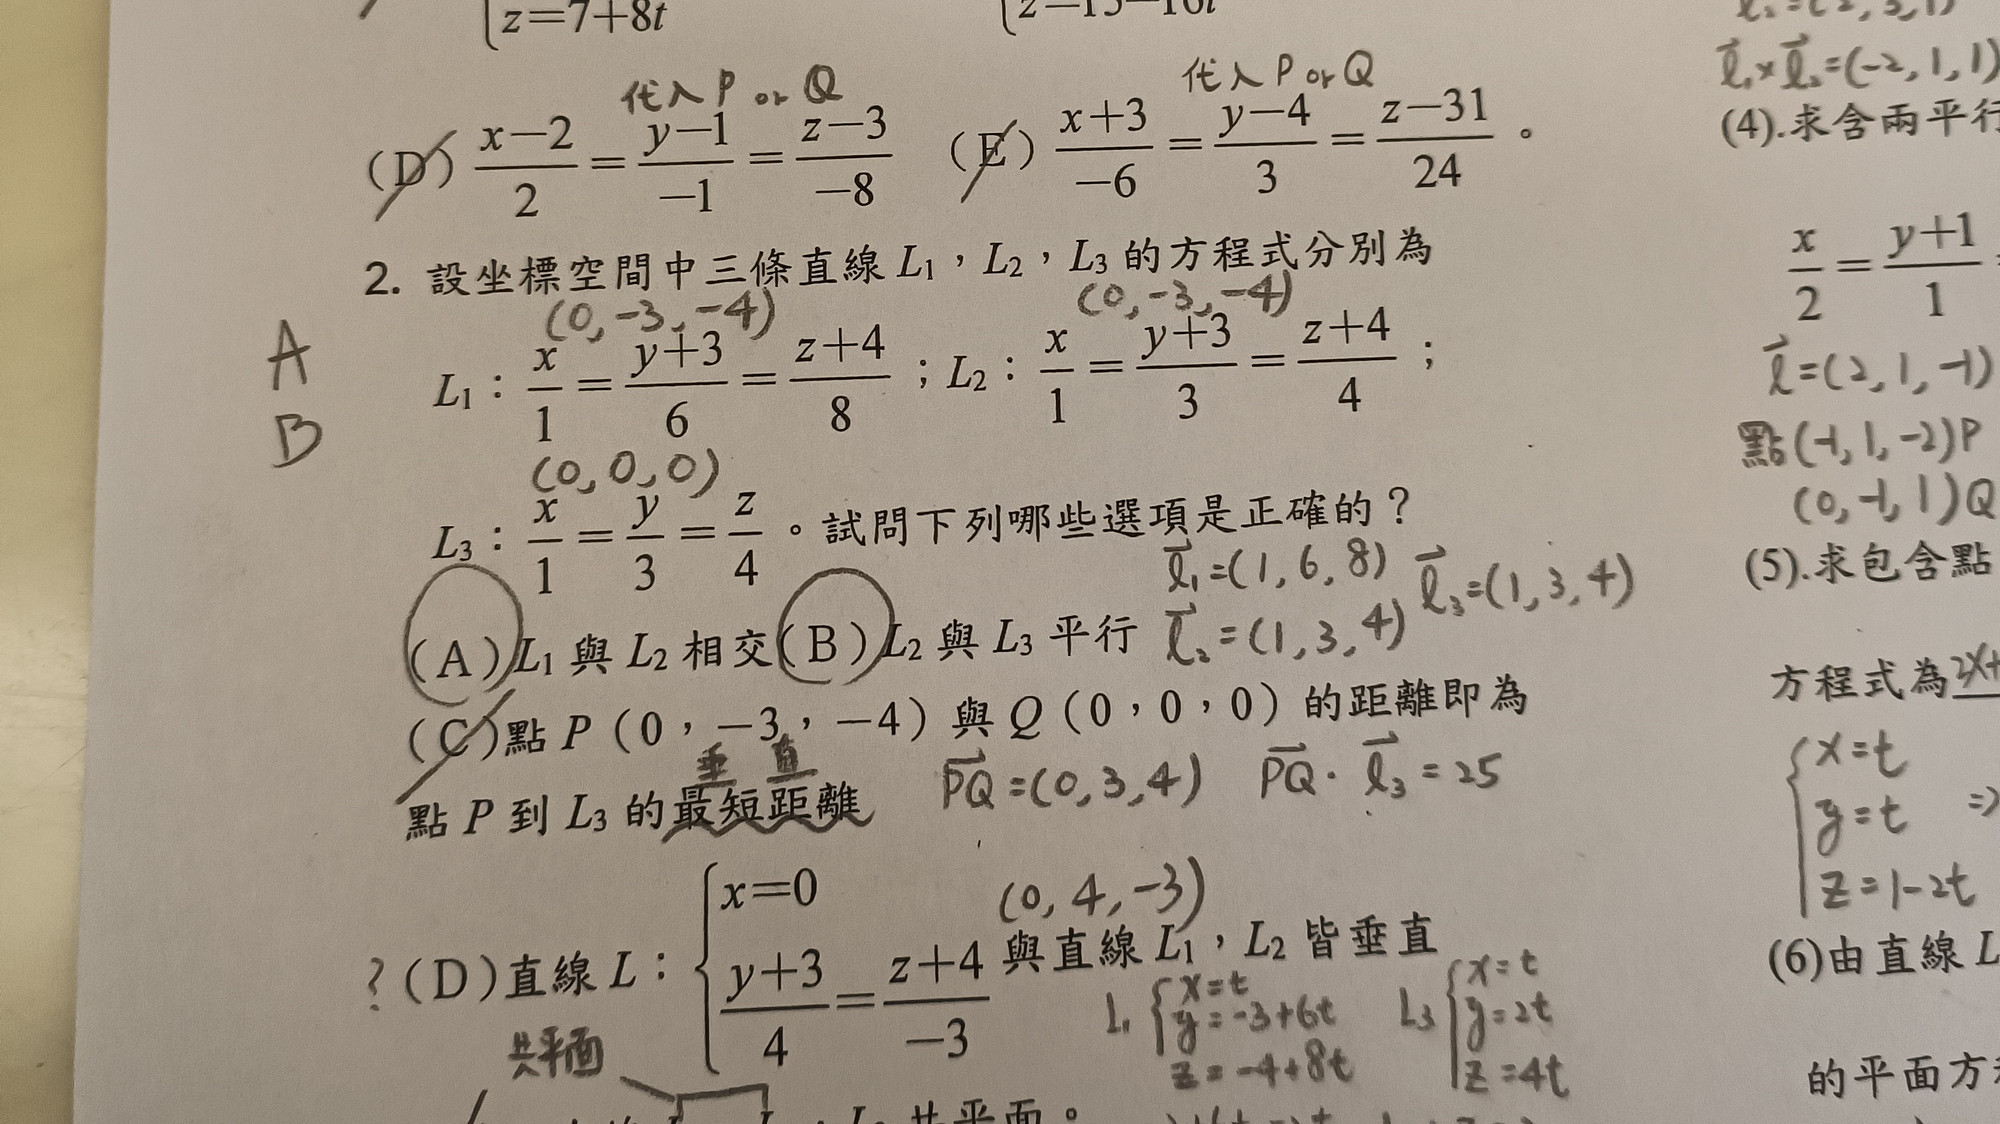 z=7+8t
代入P or Q 代入P or Q
(D) x−2/2 = y−1/−1 = z−3/−8 (E) x+3/−6 = y−4/3 = z−31/24 。
2. 設坐標空間中三條直線 L1,L2,L3 的方程式分別為
(0,-3,-4) (0,-3,-4)
A
L1:x/1 = y+3/6 = z+4/8 ;L2:x/1 = y+3/3 = z+4/4 ;
B
(0,0,0)
L3:x/1 = y/3 = z/4 。試問下列哪些選項是正確的?
l1=(1,6,8) l3=(1,3,4)
(A)L1 與 L2 相交(B)L2 與 L3 平行 l2=(1,3,4)
(C)點 P(0,−3,−4)與 Q(0,0,0)的距離即為
垂直
點 P 到 L3 的最短距離 PQ=(0,3,4) PQ·l3=25
(0,4,-3)
?(D)直線 L:{x=0 y+3/4 = z+4/−3 與直線 L1,L2 皆垂直
共平面
L1 {x=t L3 {x=t
y=-3+6t y=2t
z=-4+8t z=4t
共平面。
l1×l2=(-2,1,1)
(4).求含兩平行
x/2 = y+1/1
l=(2,1,-1)
點(-1,1,-2)P
(0,-1,1)Q
(5).求包含點
方程式為2x+
{x=t
y=t ⇒
z=1-2t
(6)由直線 L
的平面方